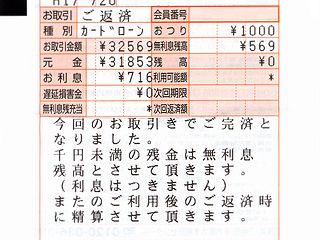 お取引 ご返済 会員番号
種別 カードローン おつり ¥1000
お取引金額 ¥32569 無利息残高 ¥569
元金 ¥31853 残高 ¥0
お利息 ¥716 利用可能額 *
遅延損害金 ¥0 次回期限
無利息残充当 * 次回返済額
今回のお取引きでご完済と
なりました。
千円未満の残金は無利息
残高とさせて頂きます。
(利息はつきません)
またのご利用後のご返済時
に精算させて頂きます。